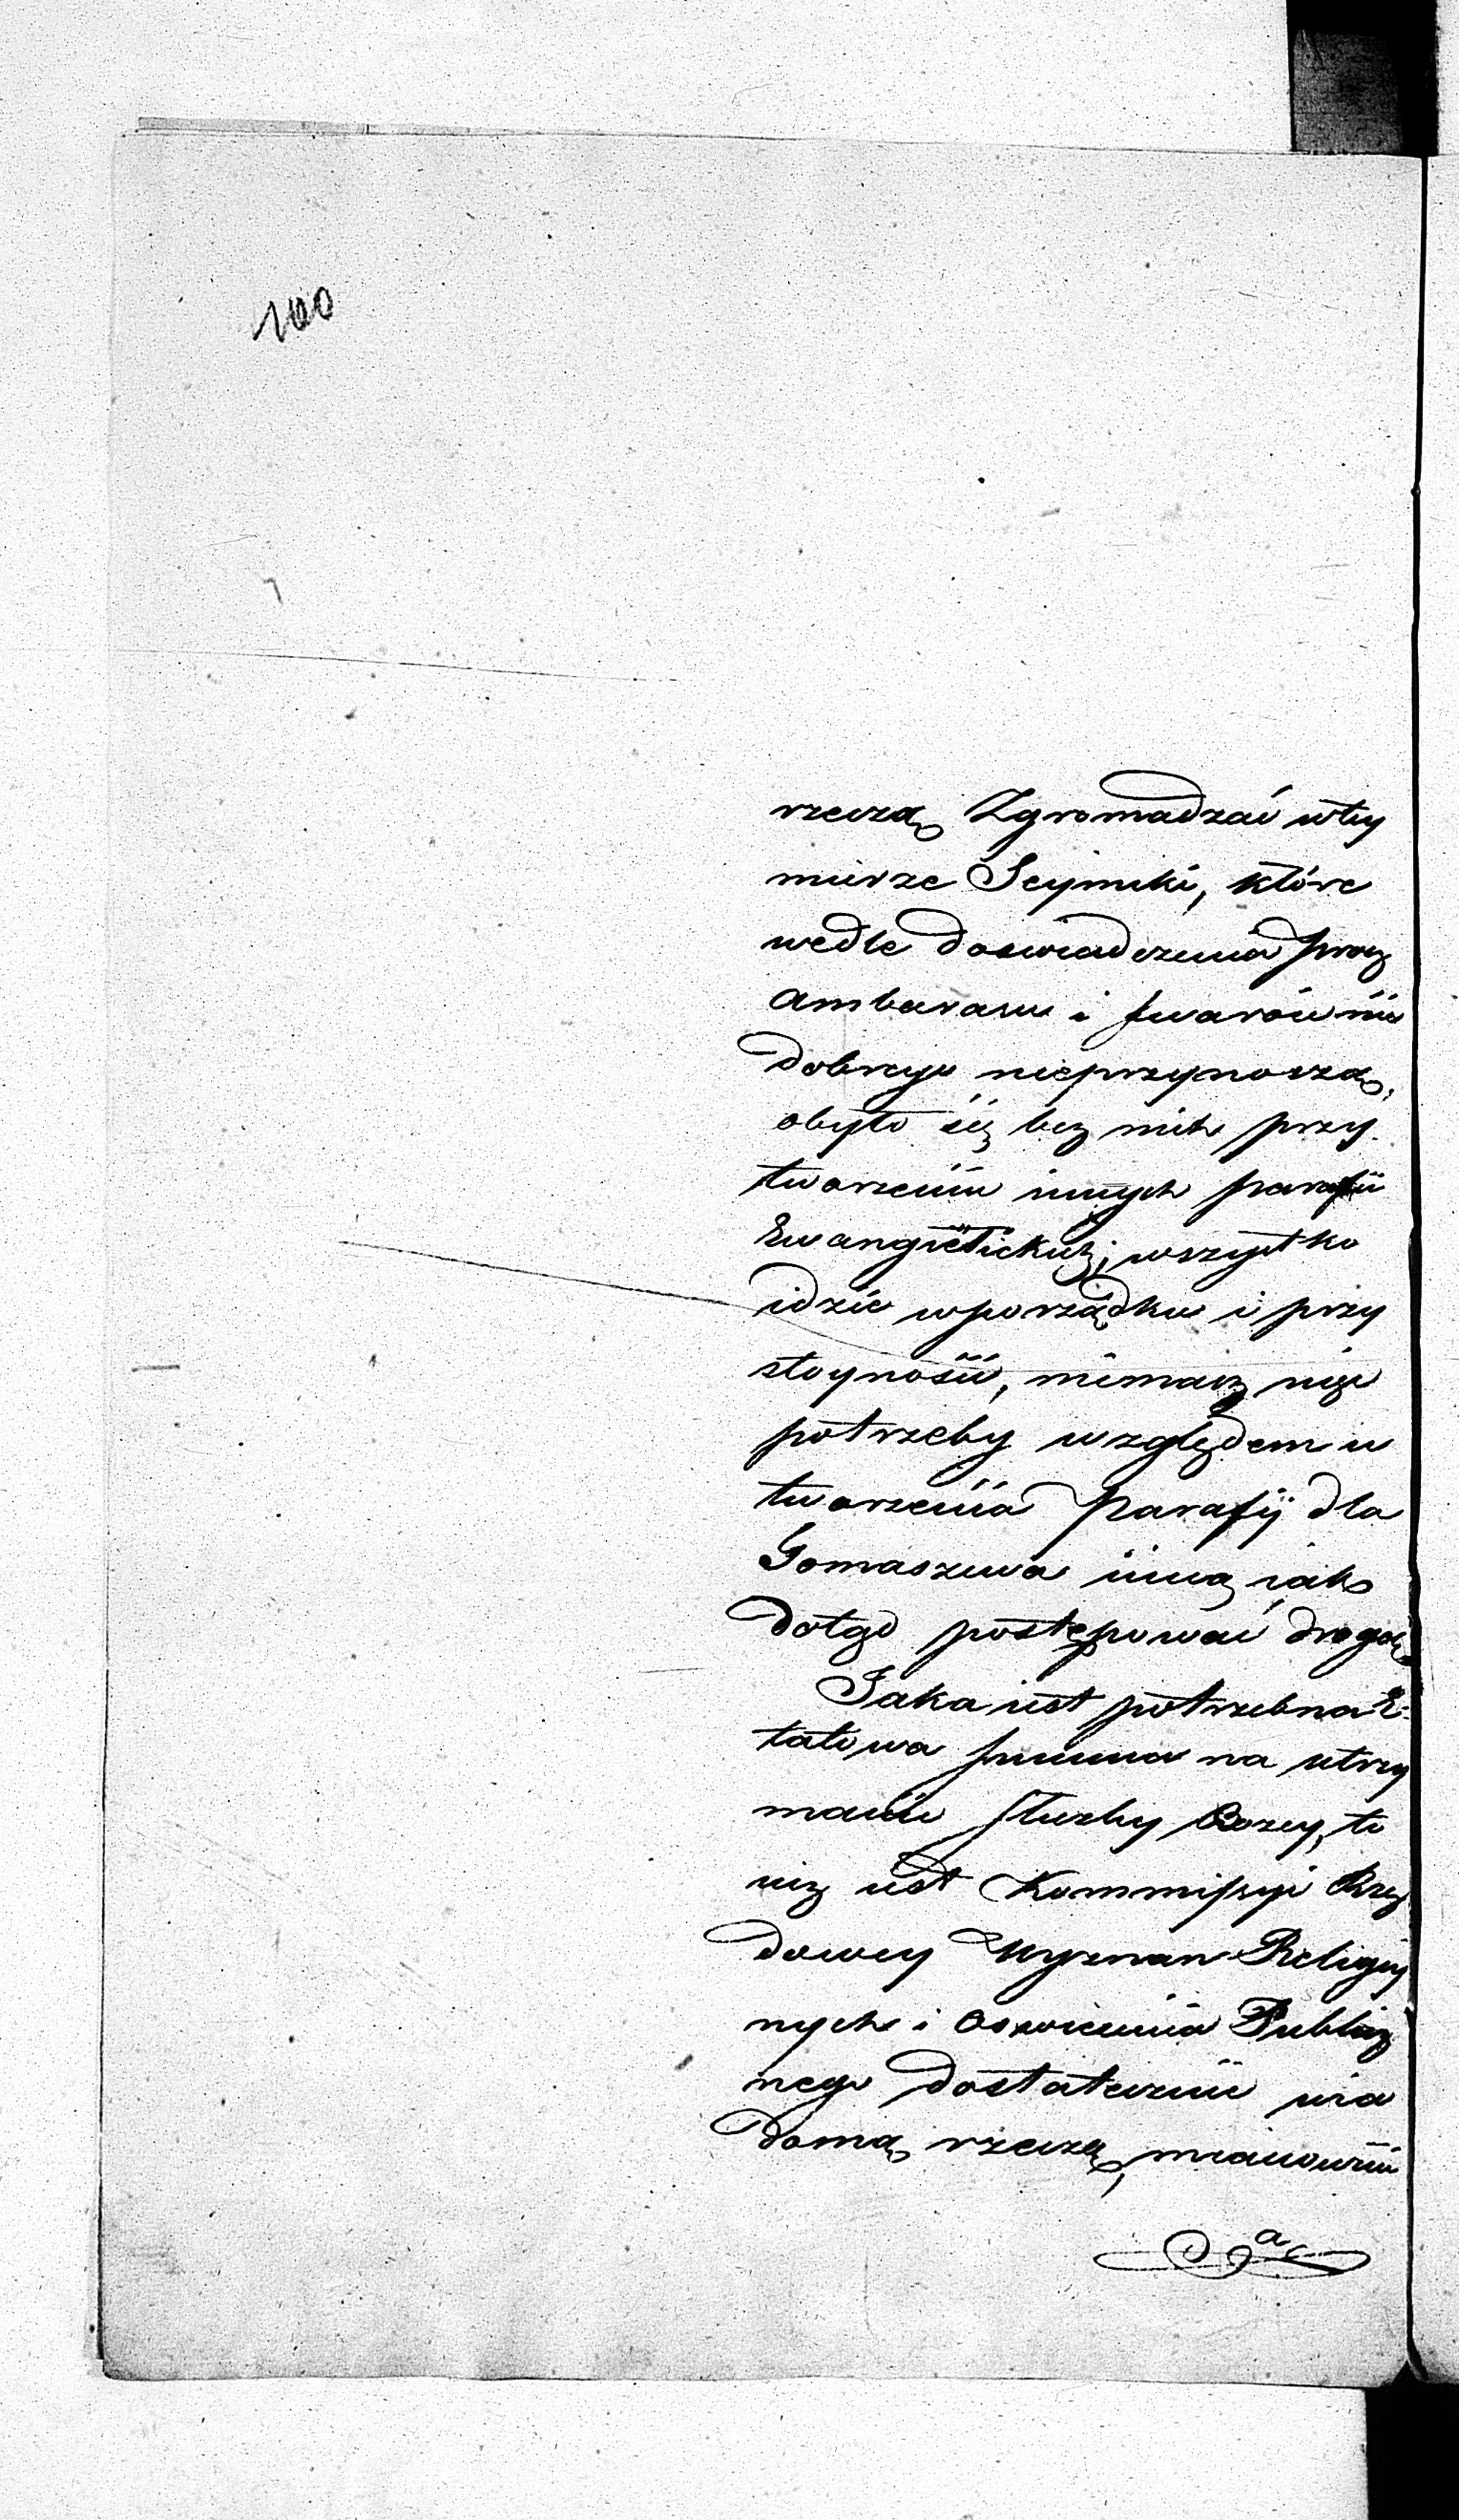 100
rzeczą Zgromadzać wtey
mierze Seymiki, które
wedle doswiadczenia procz
Ambarasu i swarów nic
dobrego nieprzynoszą,
obyło się bez nich przy
tworzeniu innych parafii
Ewangielickich, wszystko
idzie wporządku i przy
stoyności, niemasz więc
potrzeby względem u
tworzenia Parafij dla
Tomaszowa inną iak
dotąd postępować drogą.
Jaka iest potrzebna E-
tatowa summa na utrzy
manie służby Bozey, to
iuz iest Kommissyi Rzą
dowey Wyznan Religiy
nych i Oswiecenia Publicz
nego dostatecznie wia
domą rzeczą, mianowicie
a